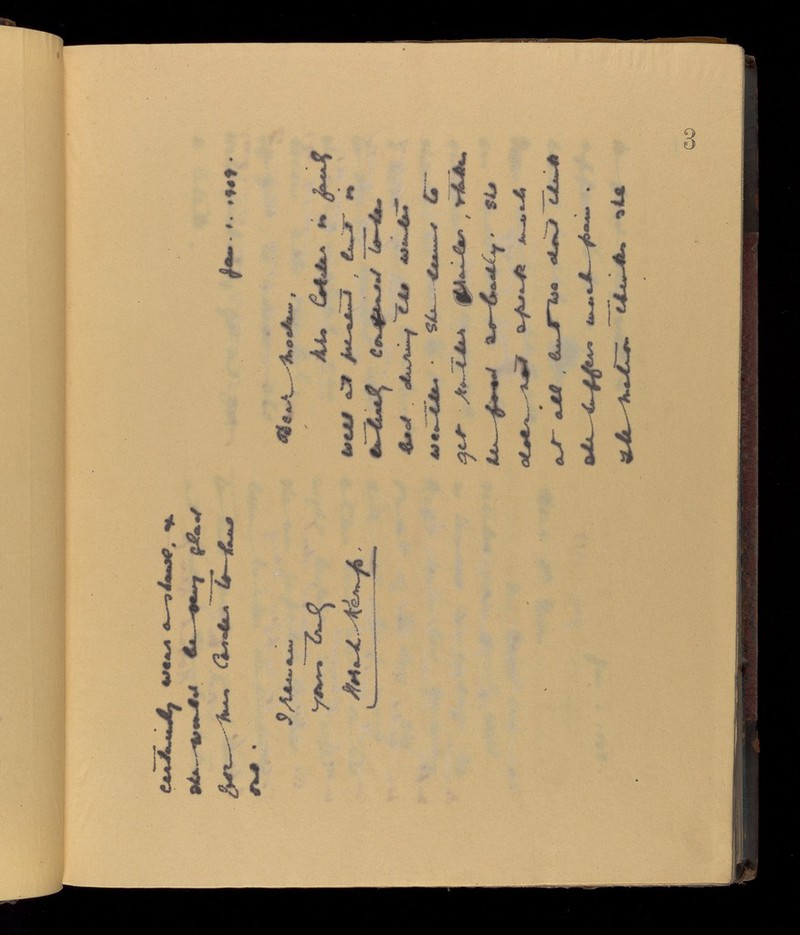 Jan. 1. 1909.
Dear Madam,
Mrs Corder is fairly
well at present, but is
entirely confined to her
bed during the winter
weather. She seems to
get rather frailer, & takes
her food so badly. She
does not speak much
at all, but we don't think
she suffers much pain.
The matron thinks she
certainly wear a shawl, &
she would be very glad
for Mrs Corder to have
one.
I remain
Yours truly
Norah Kemp.
3